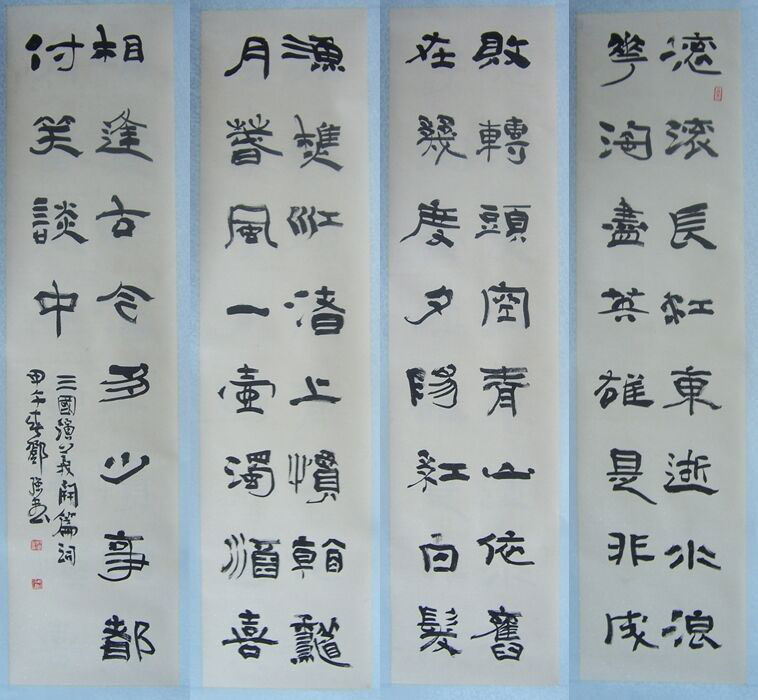 滚滚長江東逝水浪
華淘盡英雄是非成
敗轉頭空青山依舊
在幾度夕陽紅白髮
漁樵江渚上慣看龝
月春風一壺濁酒喜
相逢古今多少事都
付笑談中
三國演義開篇詞
甲午春鄧書